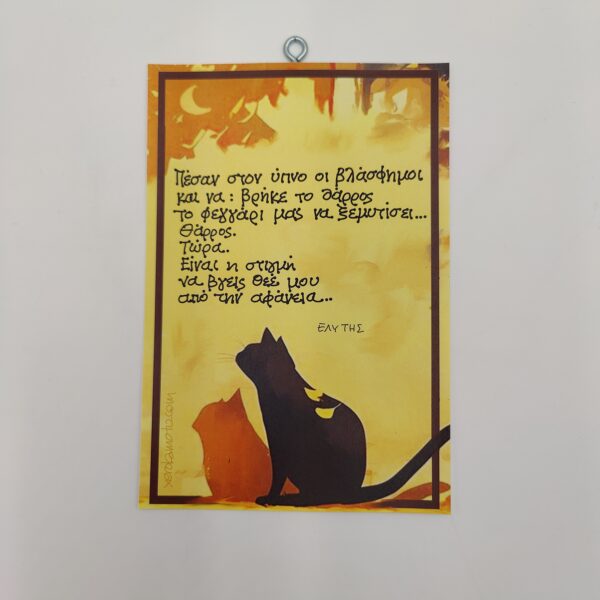 Πέσαν στον ύπνο οι βλάσφημοι
και να: βρήκε το θάρρος
το φεγγάρι μας να ξεμυτίσει...
Θάρρος.
Τώρα.
Είναι η στιγμή
να βγεις Θεέ μου
από την αφάνεια...
ΕΛΥΤΗΣ